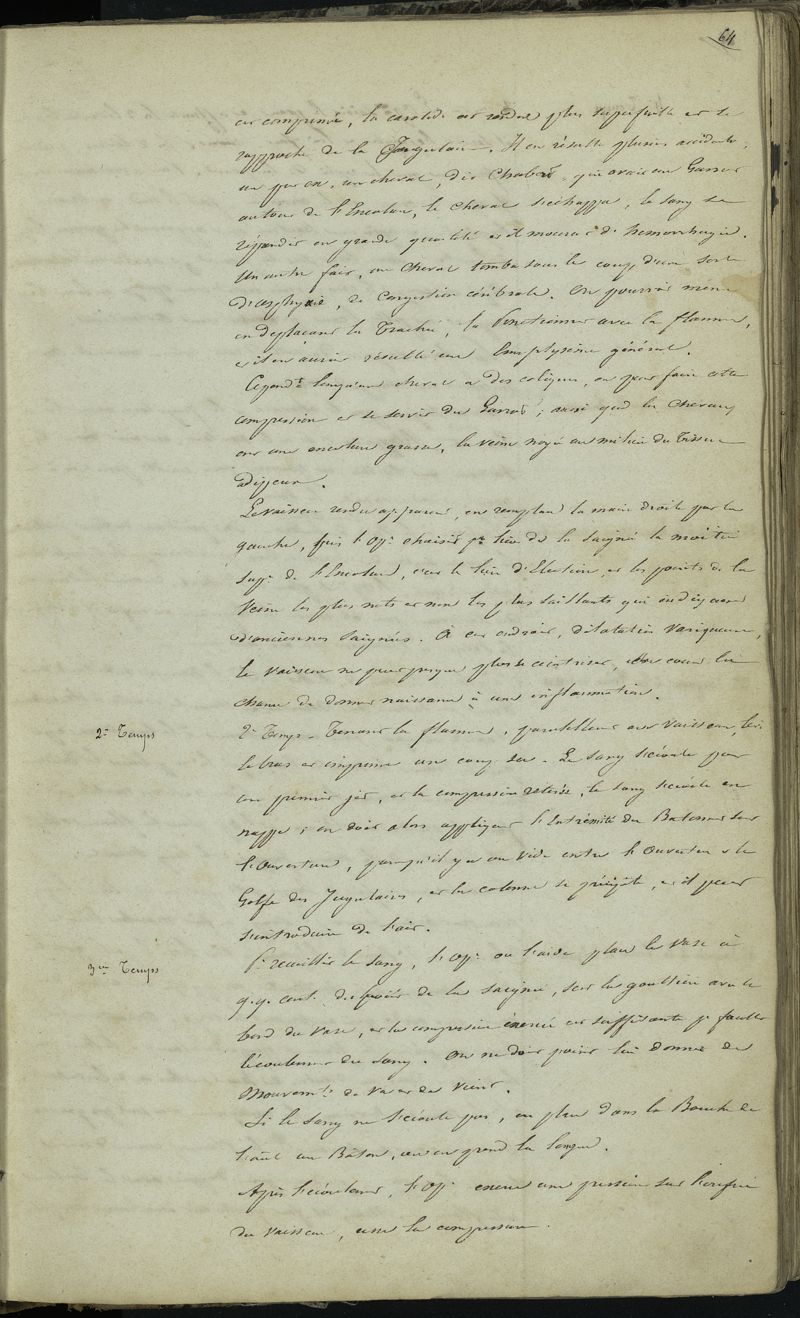 64
est comprimée, la carotide est rendue plus superficielle et se
rapproche de la Jugulaire. Il en résulte plusieurs accidents,
un par ex. un cheval, dit Chabert, qui avait un Garrot
autour de l'Encolure, le cheval s'échappa, le sang se
répandit en grande quantité et il mourut d'hémorrhagie.
Un autre fait, un cheval tomba sous le coup d'une sorte
d'asphyxie, de Congestion cérébrale. On pourrait même
en déplaçant la Trachée, la Ponctionner avec la flamme,
et il en aurait résulté une Emphysème général.
Cepend.t lorsqu'un cheval a des coliques, on peut faire cette
compression et se servir du Garrot; aussi quand les chevaux
ont une encolure grasse, la veine noyée au milieu du Tissu
adipeux.
Le vaisseau rendu apparent, on remplace la main droite par la
gauche, puis l'op.r choisit p.r lieu de la saignée la moitié
sup.re de l'Encolure, c'est le lieu d'Election, et les points de la
Veine les plus nets et non les plus saillants qui indiquent
d'anciennes saignées. À cet endroit, dilatation variqueuse,
le vaisseau ne peut presque plus se cicatriser, on court la
chance de donner naissance à une inflammation.
2.e Temps
2.e Temps - Tenant la flamme, parallèlement au vaisseau,
le bras et imprime un coup sec. Le sang s'écoule par
un premier jet, et la compression retirée, le sang s'écoule en
nappe; on doit alors appliquer l'Extrémité du Batonnet sur
l'ouverture, parcequ'il y a un vide entre l'ouverture et le
Golfe des Jugulaires, et la colonne se précipite, et il peut
s'introduire de l'air.
3.me Temps
P.r recueillir le sang, l'op.r ou l'aide place le vase à
q.q. cent. de la saignée, sur la gouttière avec le
bord du vase, et la compression exercée est suffisante p.r faciliter
l'écoulement du sang. On ne doit point lui donner de
Mouvem.ts de va et de vient.
Si le sang ne s'écoule pas, on place dans la Bouche de
l'anl un Bâton, ou on prend la langue.
Après l'écoulement, l'op.r exerce une pression sur l'orifice
du vaisseau, cesse la compression.